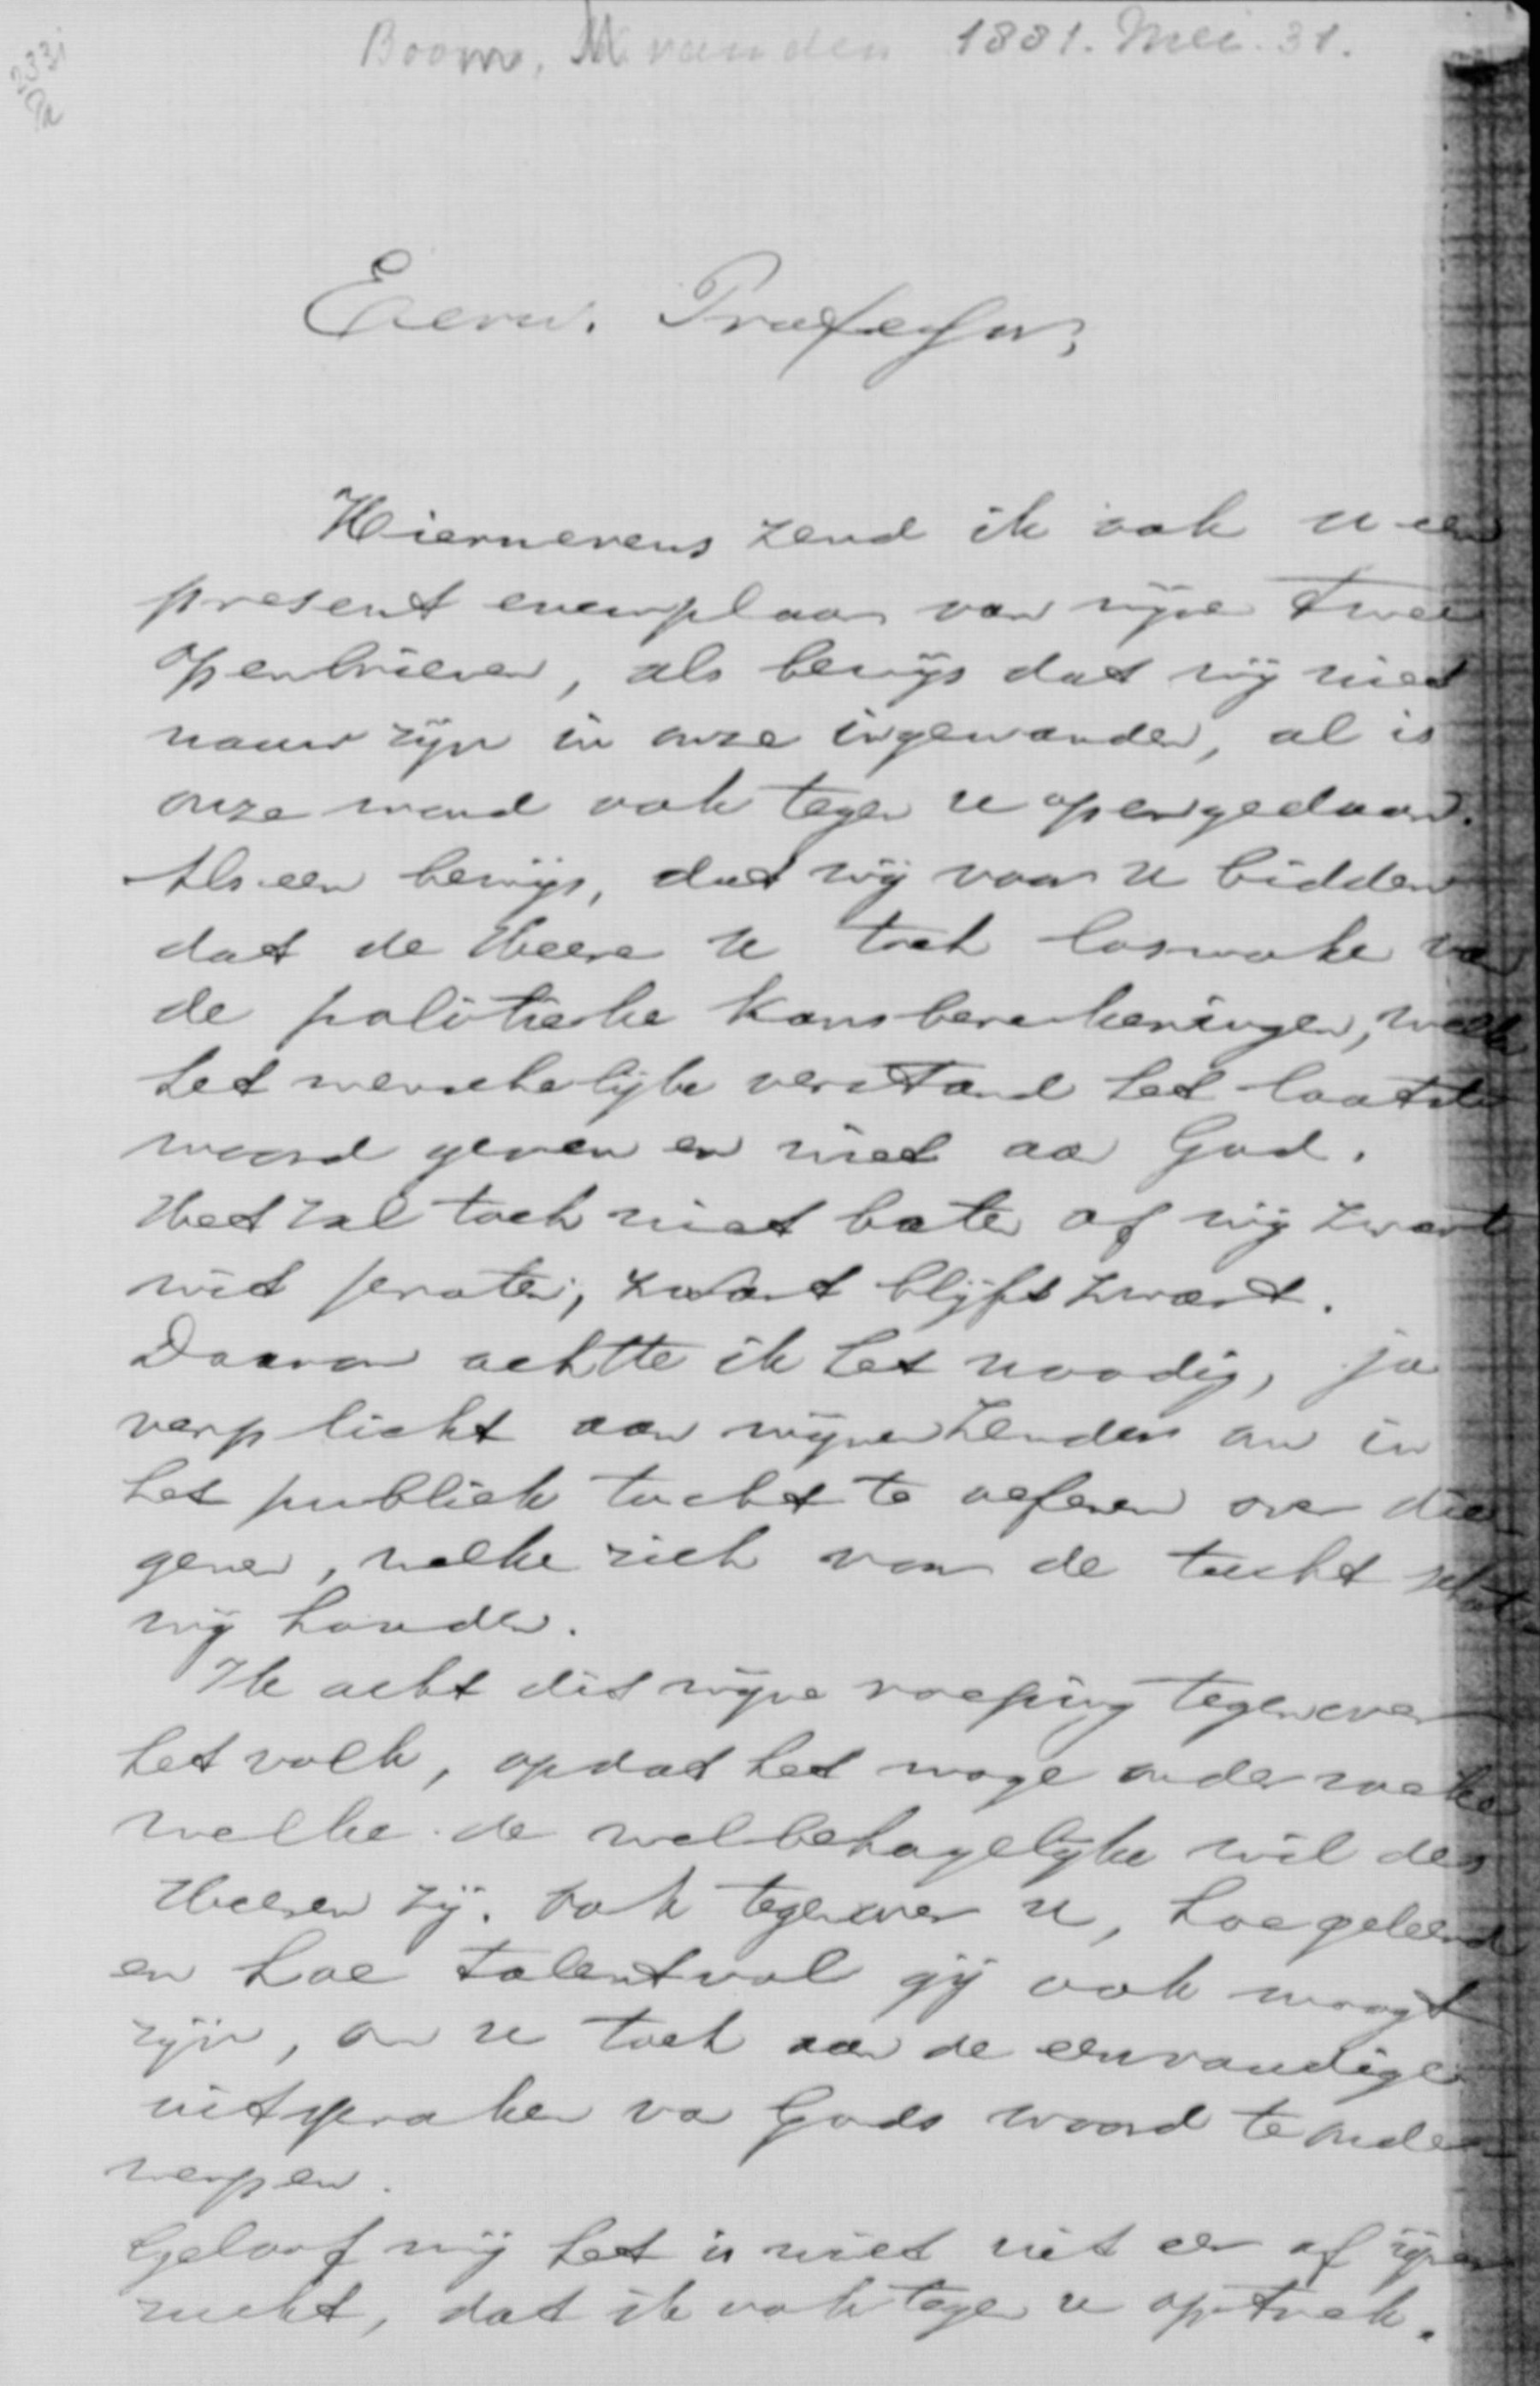 Boom, M van den 1881. Mei. 31.
233i
Pa
Eerw. Professor,
Hiernevens zend ik ook u een
present exemplaar van mijne twee
openbrieven, als bewijs dat wij niet
nauw zijn in onze ingewanden, al is
onze mond ook tegen u opengedaan.
Als een bewijs, dat wij voor u bidden
dat de Heere u toch losmake van
de politieke kansberekeningen, welke
het menschelijke verstand het laatste
woord geven en niet aan God.
Het zal toch niet baten of wij zwart
wit praten, zwart blijft zwart.
Daarom achtte ik het noodig, ja
verplicht aan mijnen Zender om in
het publiek tucht te oefenen over die-
genen, welke zich van de tucht schot-
vrij houden.
Ik acht dit mijne roeping tegenover
het volk, opdat het moge onderzoeken
welke de welbehagelijke wil des
Heeren zij. Ook tegenover u, hoe geleerd
en hoe talentvol gij ook moogt
zijn, om u toch aan de eenvoudige
uitspraken van Gods woord te onder-
werpen.
Geloof mij het is niet uit eer of ijver
zucht, dat ik ook tegen u optrek.